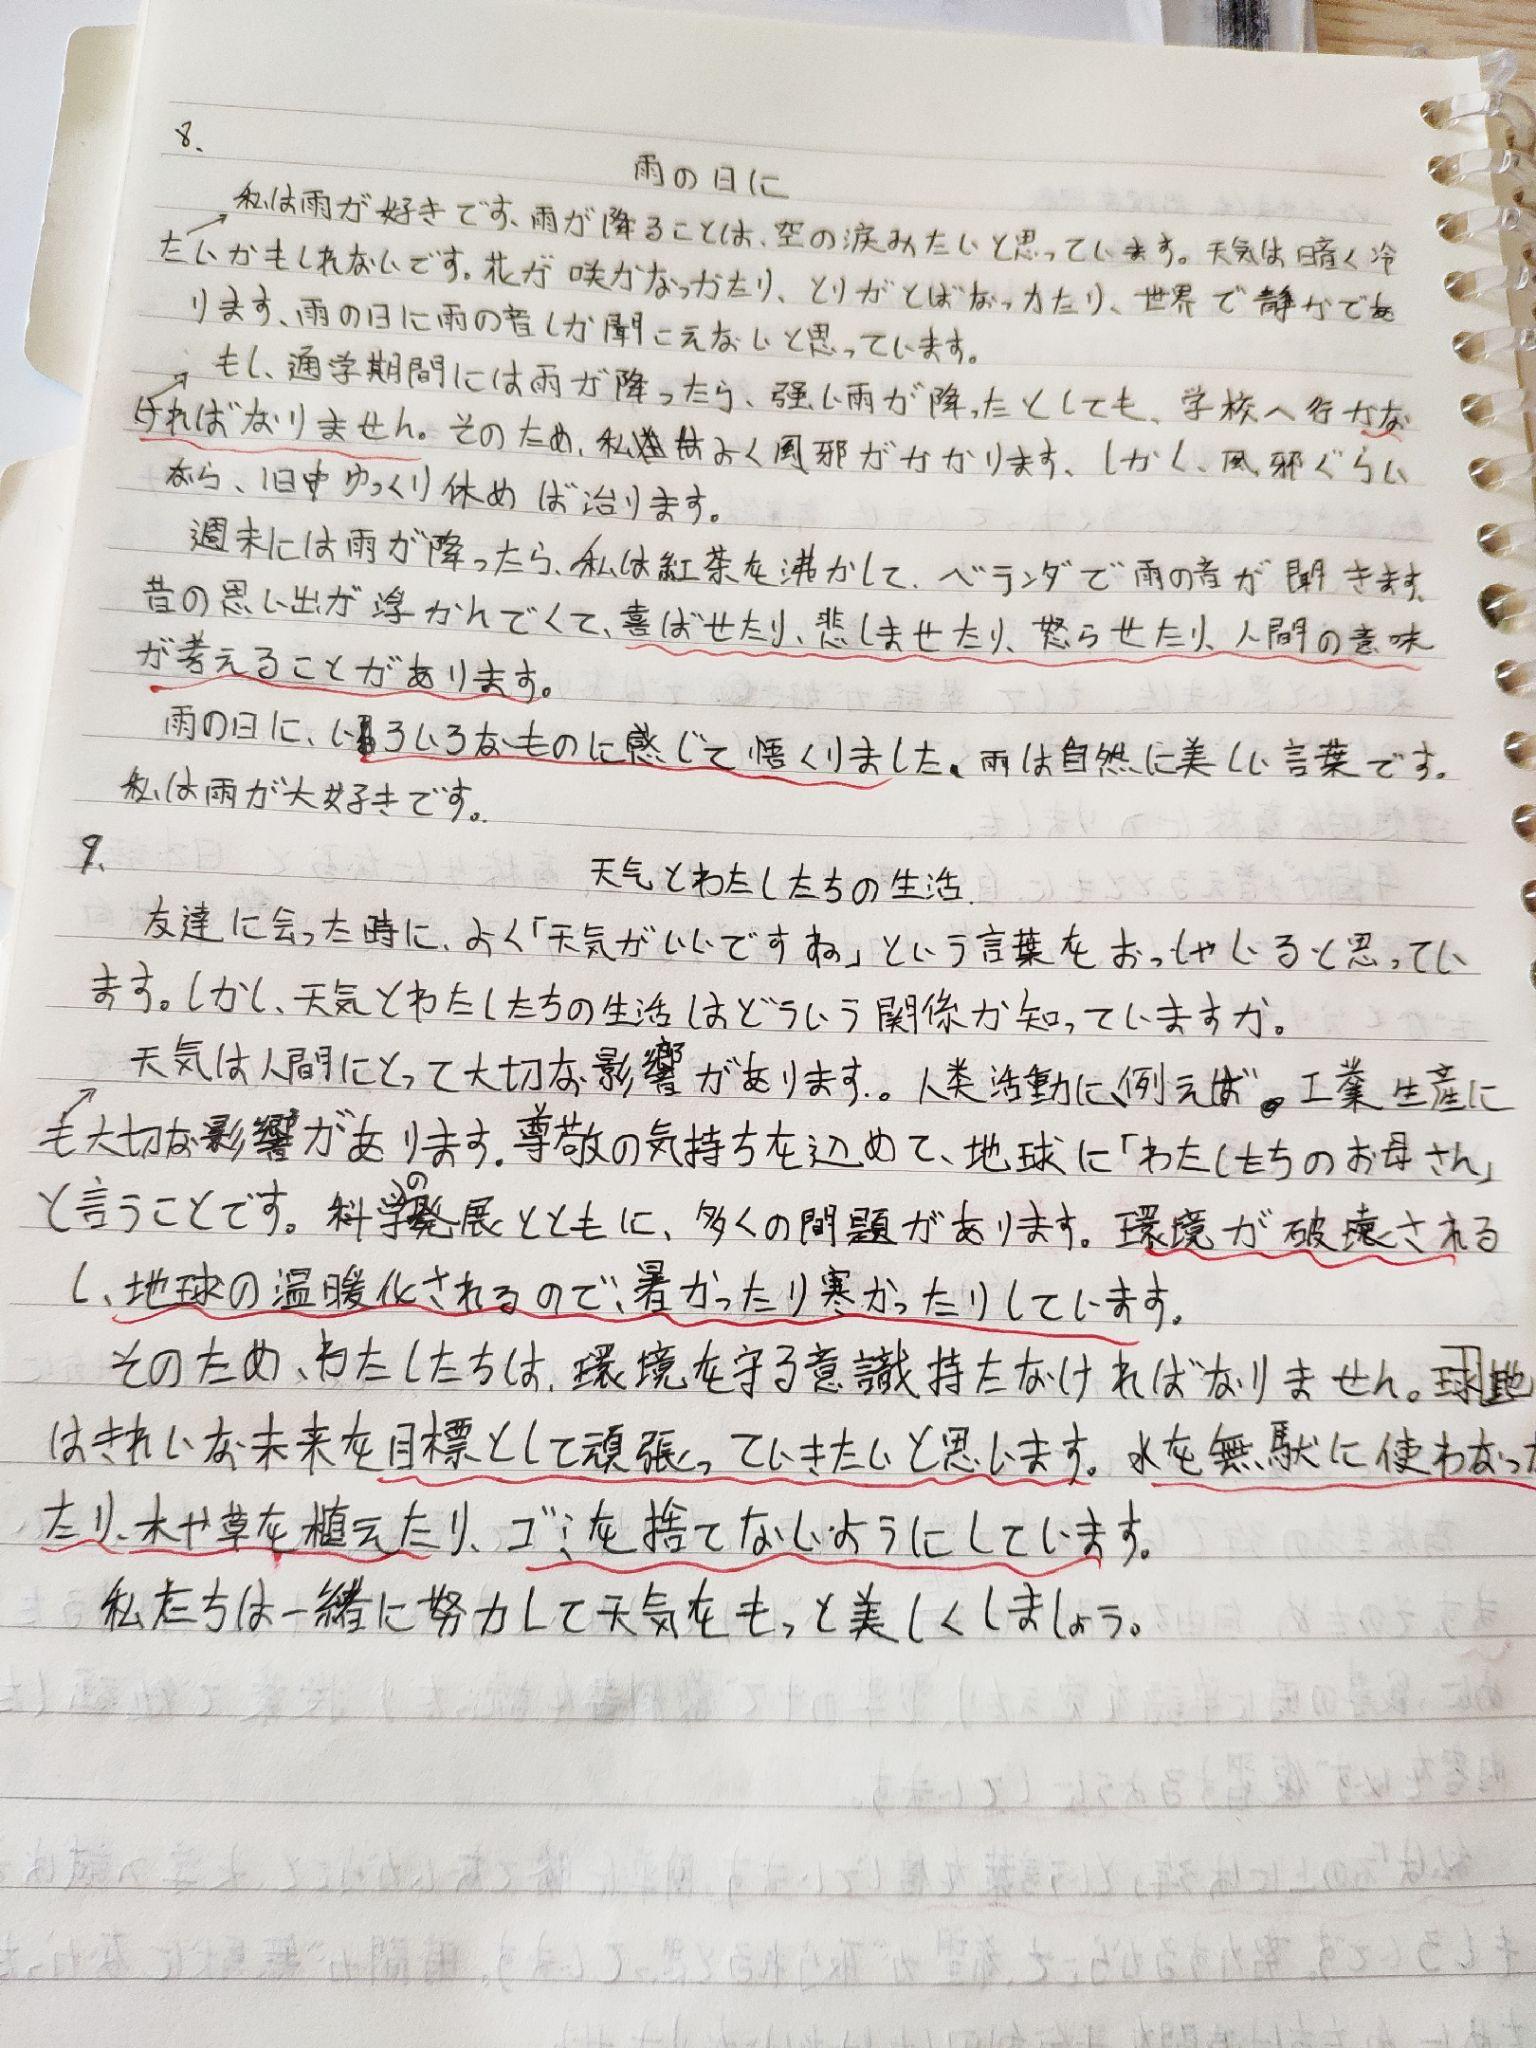 8.
雨の日に
私は雨が好きです、雨が降ることは、空の涙みたいと思っています。天気は暗く冷
たいかもしれないです。花が咲かなっかたり、とりがとばなっかたり、世界で静かであ
ります、雨の日に雨の音しか聞こえないと思っています。
もし、通学期間には雨が降ったら、強い雨が降ったとしても、学校へ行かな
ければなりません。そのため、私はよく風邪がかかります、しかし、風邪ぐらい
なら、1日中ゆっくり休めば治ります。
週末には雨が降ったら、私は紅茶を沸かして、ベランダで雨の音が聞きます。
昔の思い出が浮かんでくて、喜ばせたり、悲しませたり、怒らせたり、人間の意味
が考えることがあります。
雨の日に、いろいろなものに感じて悟くりました。雨は自然に美しい言葉です。
私は雨が大好きです。
9.
天気とわたしたちの生活.
友達に会った時に、よく「天気がいいですね」という言葉をおっしゃいると思ってい
ます。しかし、天気とわたしたちの生活はどういう関係か知っていますか。
天気は人間にとって大切な影響があります。人類活動に、例えば。工業生産に
も大切な影響があります。尊敬の気持ちを込めて、地球に「わたしたちのお母さん」
と言うことです。科学の発展とともに、多くの問題があります。環境が破壊される
し、地球の温暖化されるので、暑かったり寒かったりしています。
そのため、わたしたちは、環境を守る意識持たなければなりません。球地
はきれいな未来を目標として頑張っていきたいと思います。水を無駄に使わなっか
たり、木や草を植えたり、ゴミを捨てないようにしています。
私たちは一緒に努力して天気をもっと美しくしましょう。